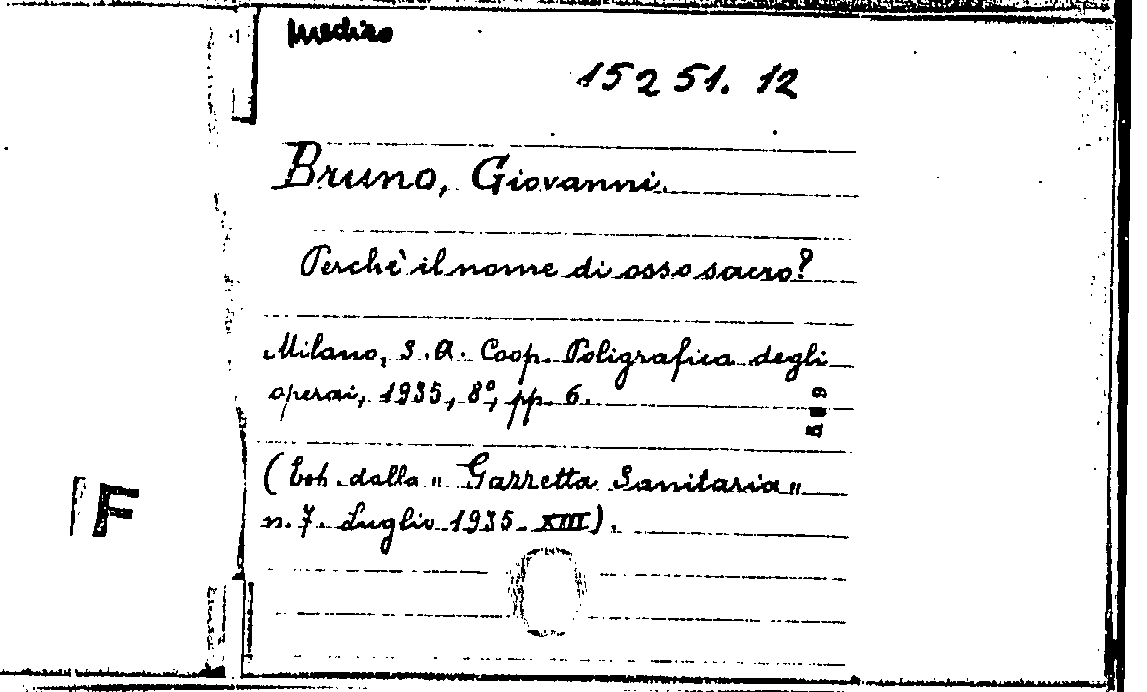 medico
15251.12
Bruno, Giovanni.
Perchè il nome di osso sacro?
Milano, S.A. Coop. Poligrafica degli
operai, 1935, 8º, pp. 6.
(Estr. dalla "Gazzetta Sanitaria"
n. 7. Luglio 1935-XIII).
F